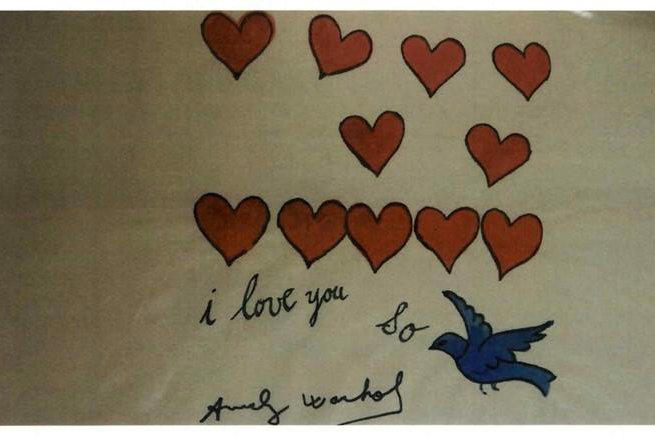 i love you
So
Andy Warhol